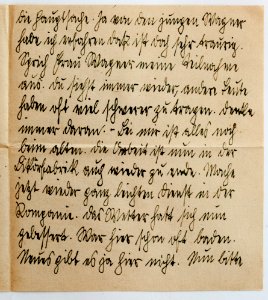 die Hauptsache. Ja von den jungen Wagner
habe ich erfahren daß ist doch sehr traurig.
Sprich Frau Wagner meine Teilnahme
aus. Du siehst immer wieder, andere Leute
haben oft viel schwerer zu tragen. Denke
immer daran. - Bei mir ist alles noch
beim alten. Die Arbeit ist nun in der
auch wieder zu ende. Mache
jetzt wieder ganz leichten Dienst in der
Kompanie. Das Wetter hatt sich nun
gebessert. War hier schon oft baden.
Neues gibt es ja hier nicht. Nun bitte